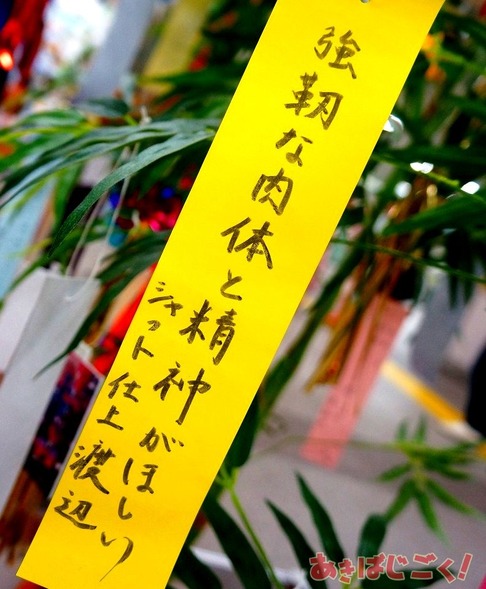 強靭な肉体と精神がほしい
シャフト仕上 渡辺
あきばじごく!